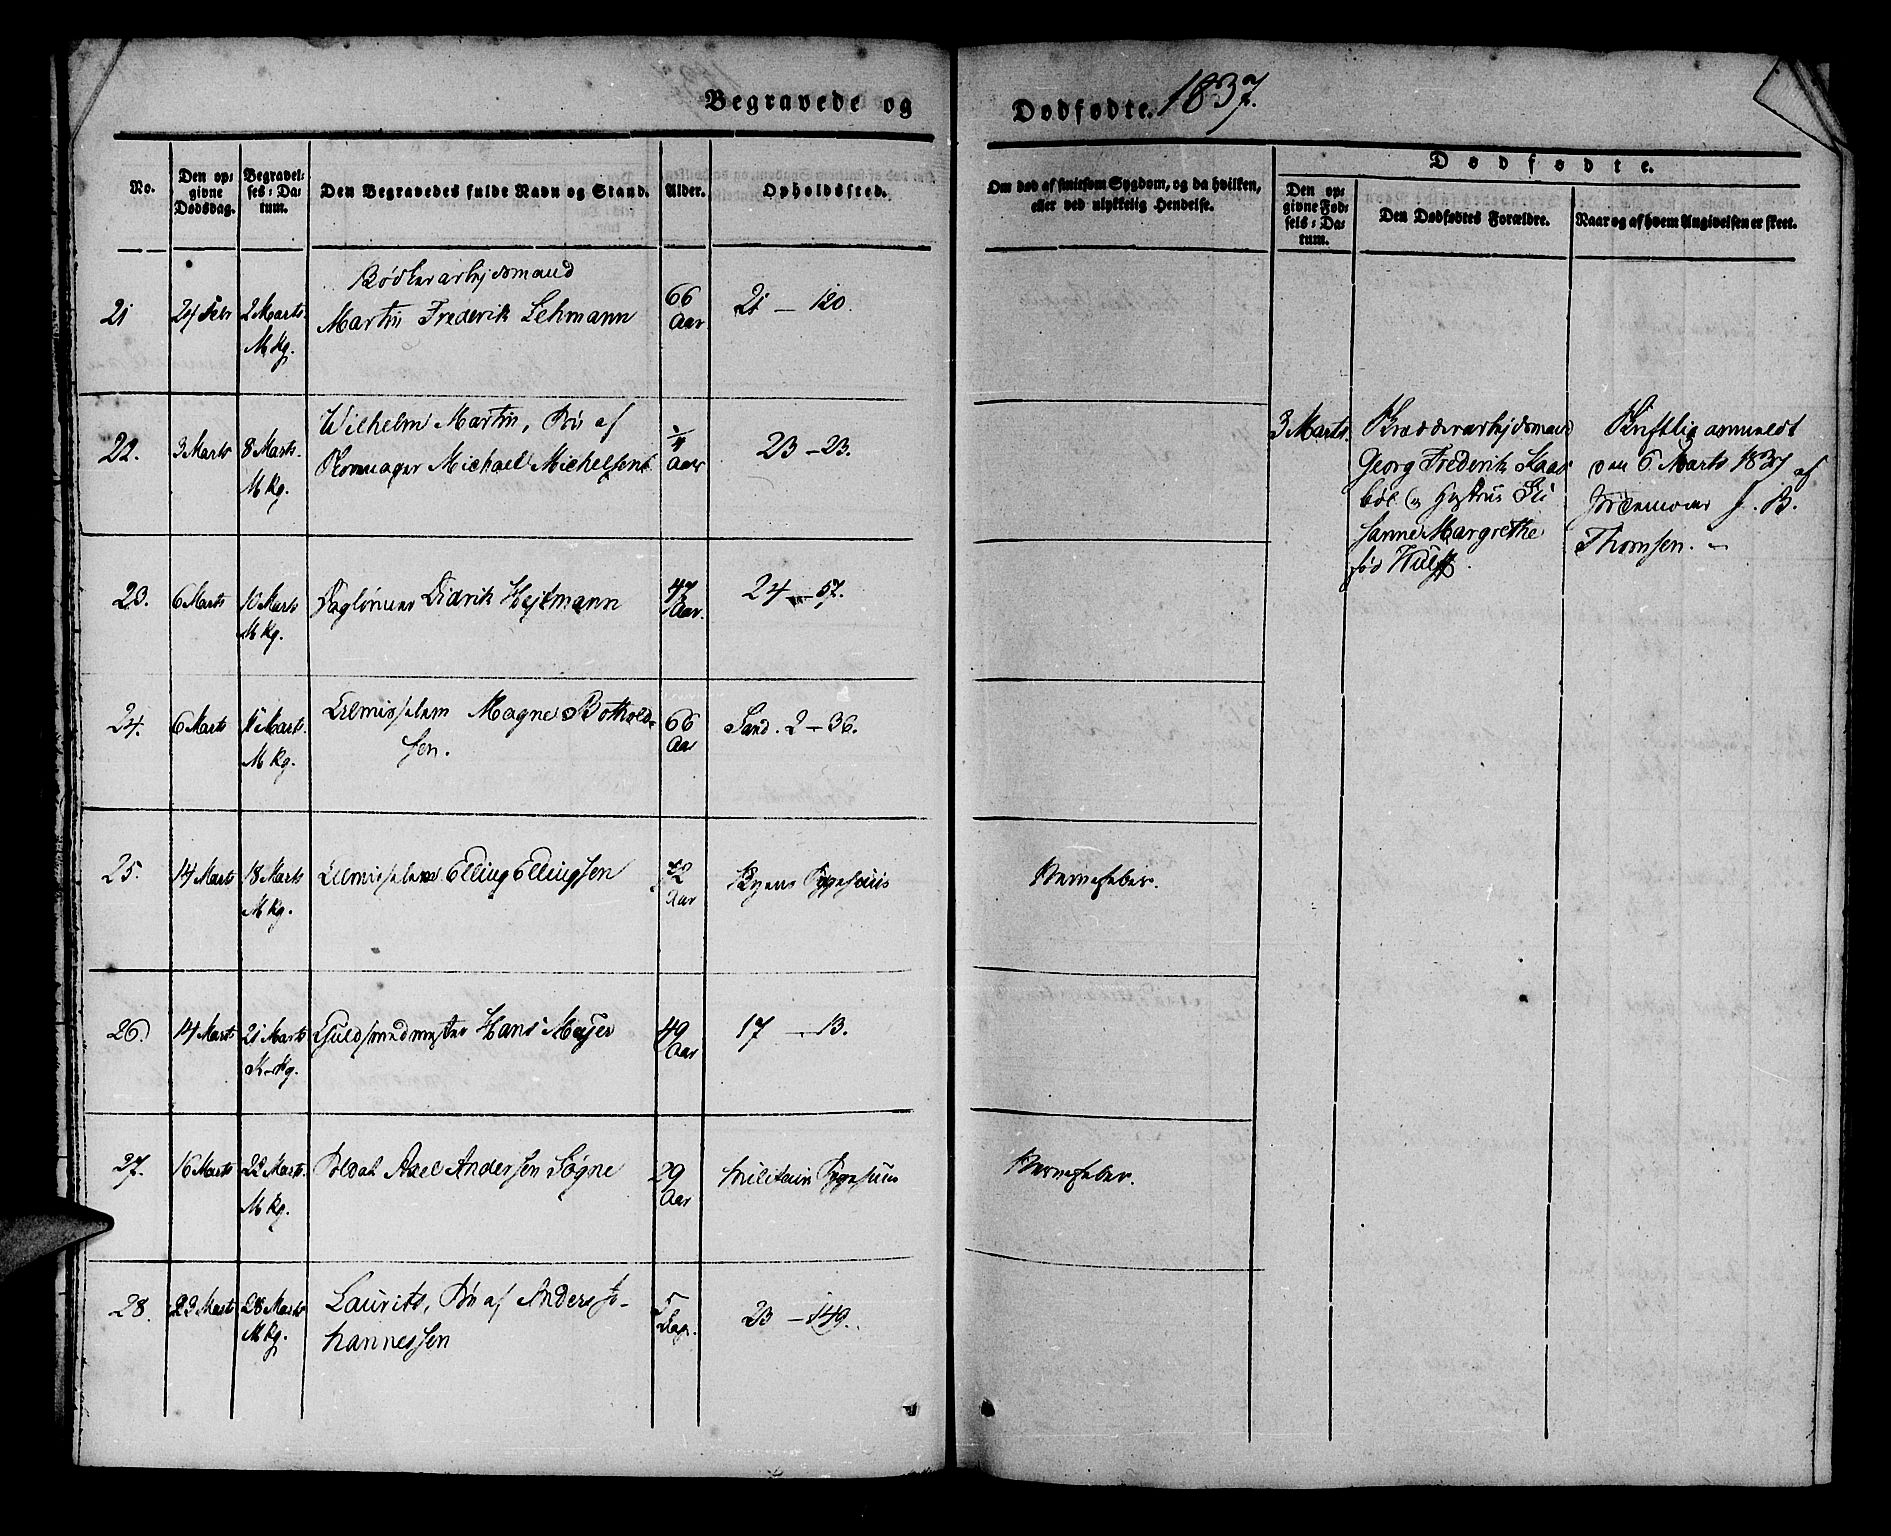 Begravede og
Dødfødte. 1837.
No.
Den opgivne Dødsdag.
Begravelses-Datum.
Den Begravedes fulde Navn og Stand.
Alder.
Opholdssted.
Om død af smitsom Sygdom, og da hvilken, eller ved ulykkelig Hendelse.
Dødfødte.
Den opgivne Fødsels-Datum.
Den Dødfødtes Forældre.
Naar og af hvem Angivelsen er skeet.
Bødkerarbejdsmand
21 24 Febr 2 Marts Martin Frederik Lehmann 66 Aar 21 – 120.
M Kg.
Wilhelm Martin, Søn af
22. 3 Marts 8 Marts Michael Michelsen ¼ Aar 23 – 23.
M Kg.
3 Marts.
Georg Frederik
Margrethe
fød
Skriftlig anmeldt
den 6 Marts 1837 af
Jordemoder J. B.
Thomsen. –
23. 6 Marts 10 Marts Dagløner Didrik Hejtmann 47 Aar. 24 – 57.
M Kg.
24. 6 Marts 11 Marts. Lilmisselem Magne Bothold-
sen. 66 Aar Sand. 2 – 36.
M Kg.
25. 14 Marts 18 Marts Lilmisselem Elling Ellingsen 52 Aar Byens Sygehuus Nervefeber.
M Kg.
26. 14 Marts 21 Marts Guldsmedmester Hans Meyer 49 Aar 17 – 13.
K-Kg.
27. 16 Marts 22 Marts. Soldat Axel Andersen Søgne 29 Aar Militair Sygehuus Nervefeber.
M Kg.
28. 23 Marts 28 Marts Laurits, Søn af Anders Jo-
hannessen 5 Dage. 23 – 149.
M Kg.